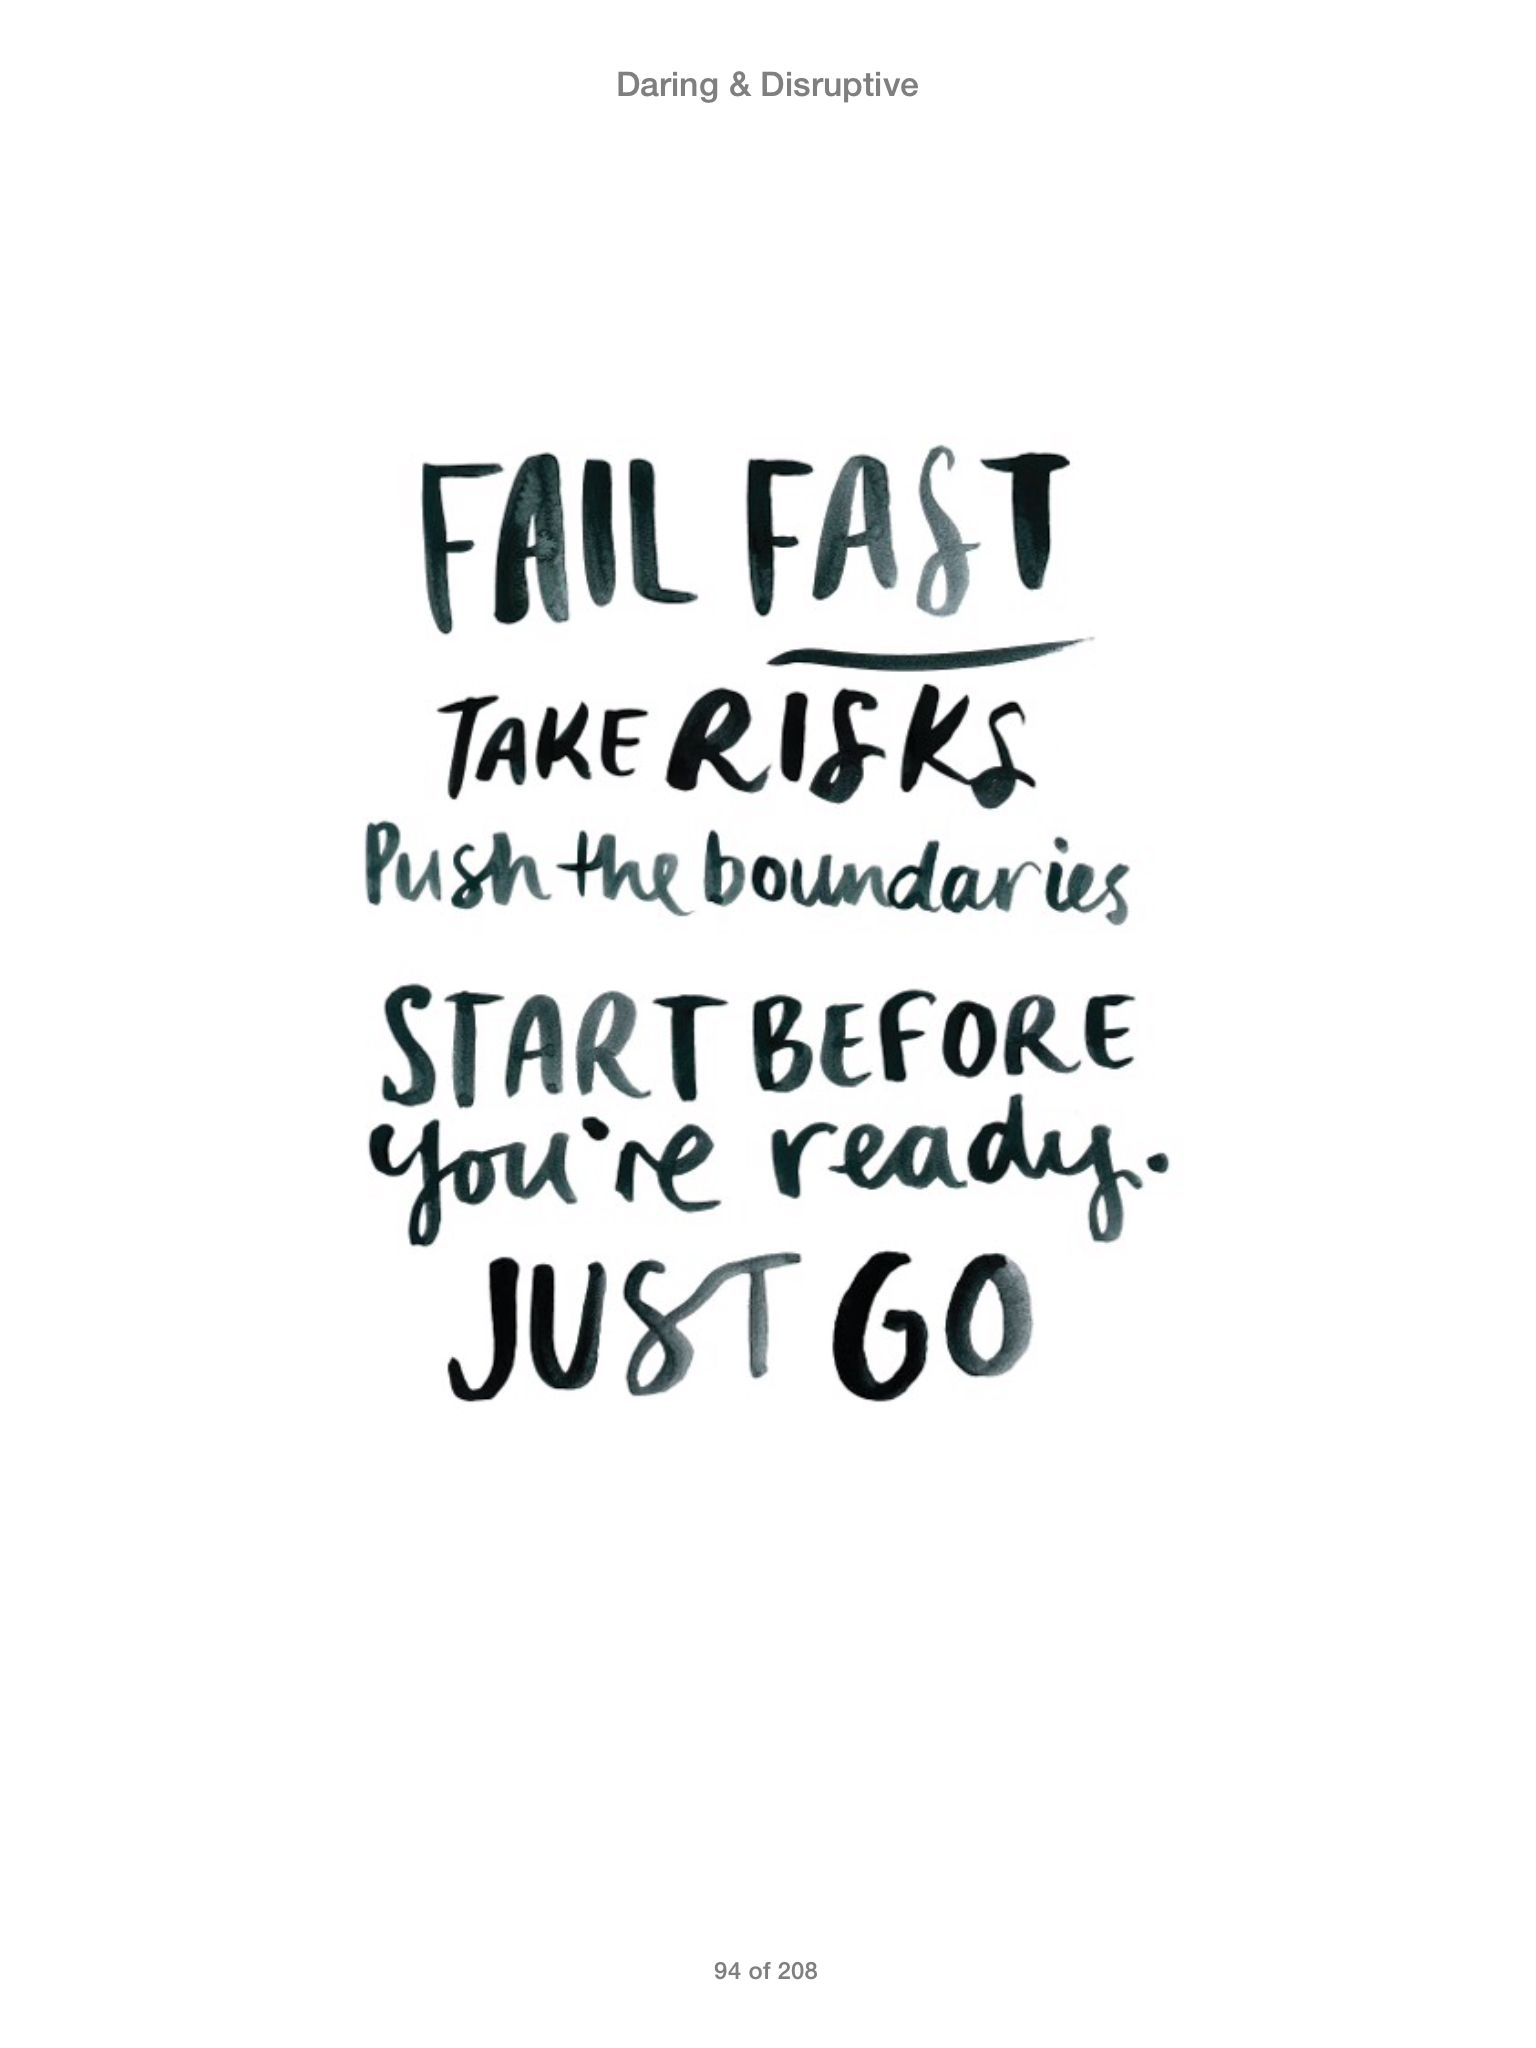 Daring & Disruptive
FAIL FAST
TAKE RISKS
Push the boundaries
START BEFORE
you're ready.
JUST GO
94 of 208